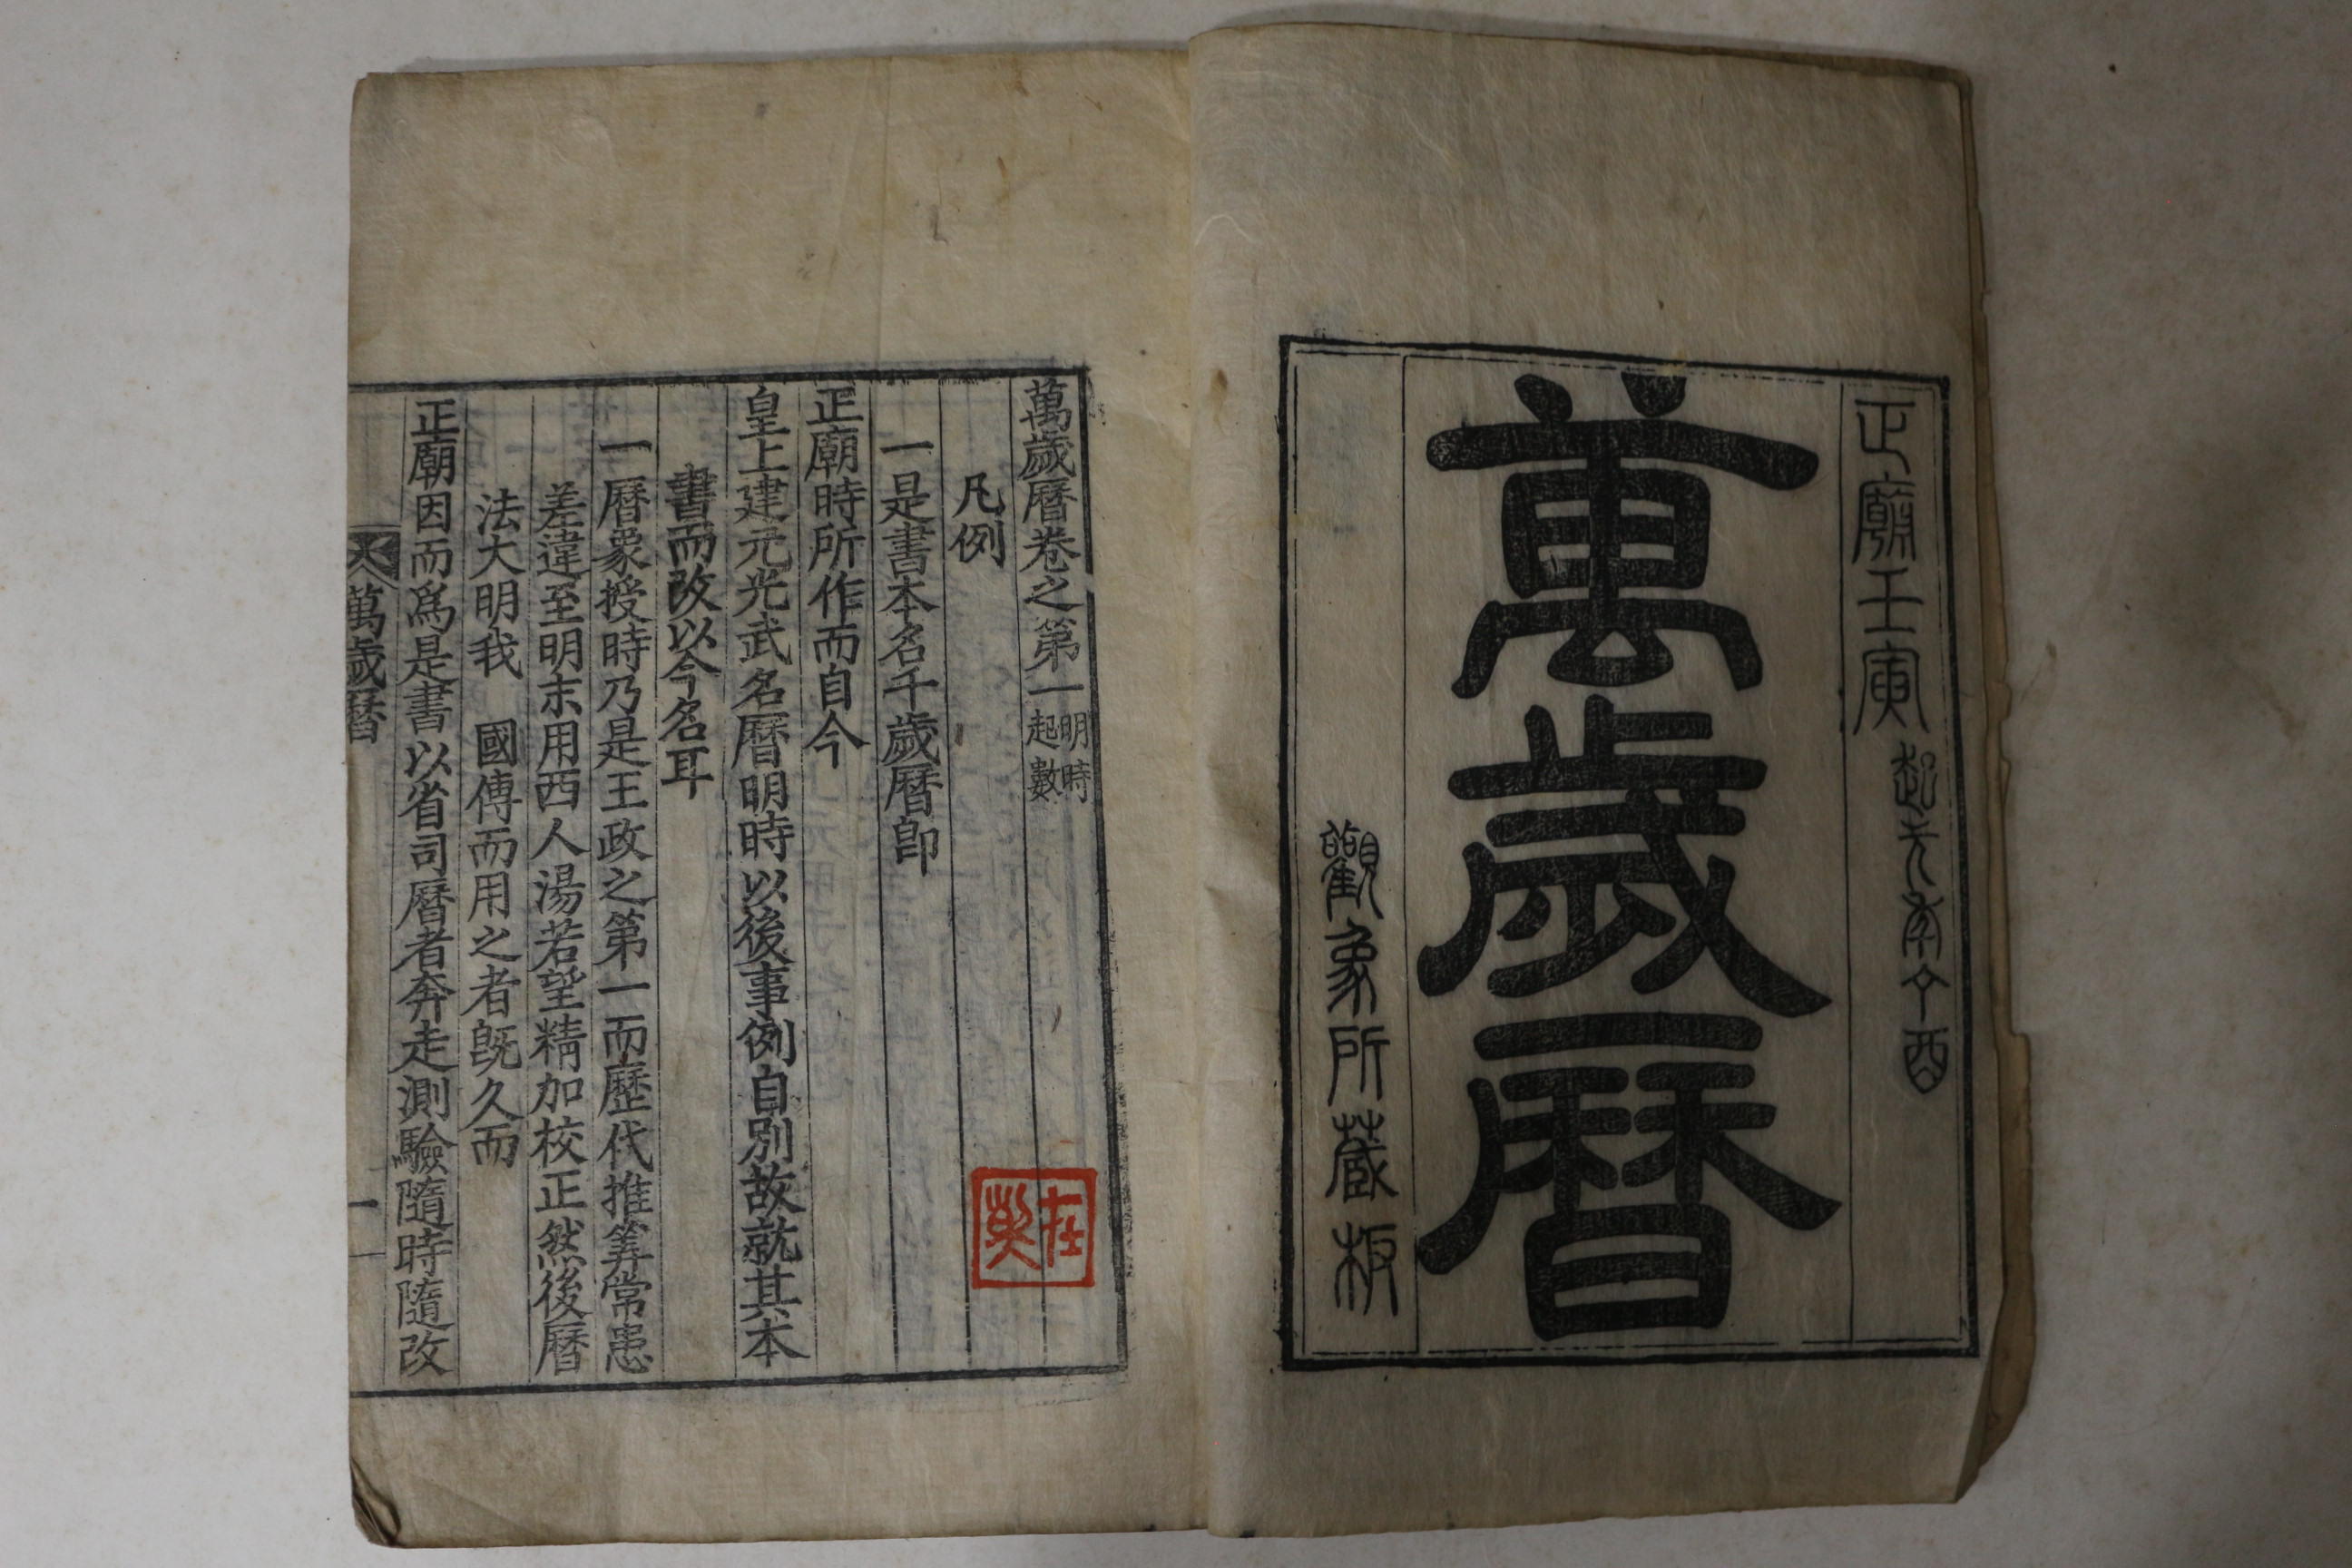 正廟壬寅起元南丁酉
萬歲曆
觀象所藏板
萬歲曆卷之第一 明時起數
凡例
一是書本名千歲曆卽
正廟時所作而自今
皇上建元光武名曆明時以後事例自別故就其本
書而改以今名耳
一曆象授時乃是王政之第一而歷代推筭常患
差違至明末用西人湯若望精加校正然後曆
法大明我 國傳而用之者旣久而
正廟因而爲是書以省司曆者奔走測驗隨時隨改
萬歲曆 一